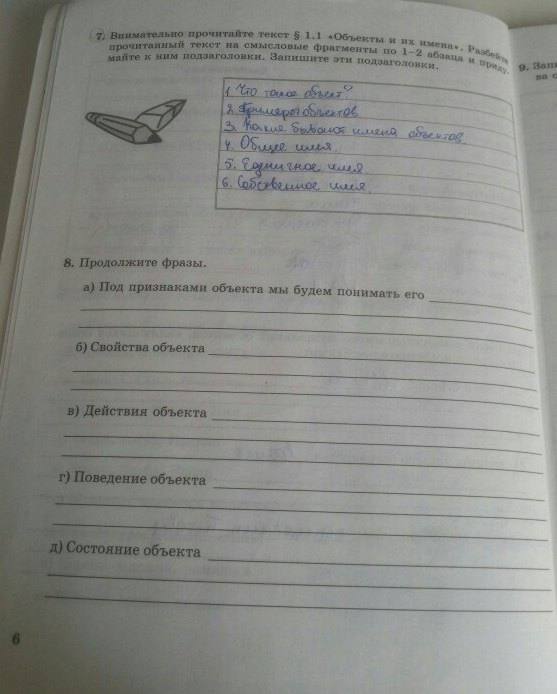 7. Внимательно прочитайте текст § 1.1 «Объекты и их имена». Разбейте
прочитанный текст на смысловые фрагменты по 1–2 абзаца и приду-
майте к ним подзаголовки. Запишите эти подзаголовки.
9. Запи
ва с
1. Что такое объект?
2. Примеры объектов
3. Какие бывают имена объектов
4. Общее имя.
5. Единичное имя
6. Собственное имя.
8. Продолжите фразы.
а) Под признаками объекта мы будем понимать его
б) Свойства объекта
в) Действия объекта
г) Поведение объекта
д) Состояние объекта
6